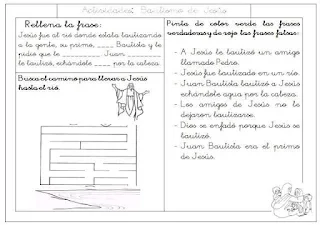 Actividades: Bautismo de Jesús
Rellena la frase:
Jesús fue al río donde estaba bautizando
a la gente, su primo, ____ Bautista y le
pidió que le ________ Juan ________
le bautizó, echándole ____ por la cabeza.
Busca el camino para llevar a Jesús
hasta el río.
Pinta de color verde las frases
verdaderas y de rojo las frases falsas:
- A Jesús le bautizó un amigo
llamado Pedro.
- Jesús fue bautizado en un río.
- Juan Bautista bautizó a Jesús
echándole agua por la cabeza.
- Los amigos de Jesús no le
dejaron bautizarse.
- Dios se enfadó porque Jesús se
bautizó.
- Juan Bautista era el primo
de Jesús.